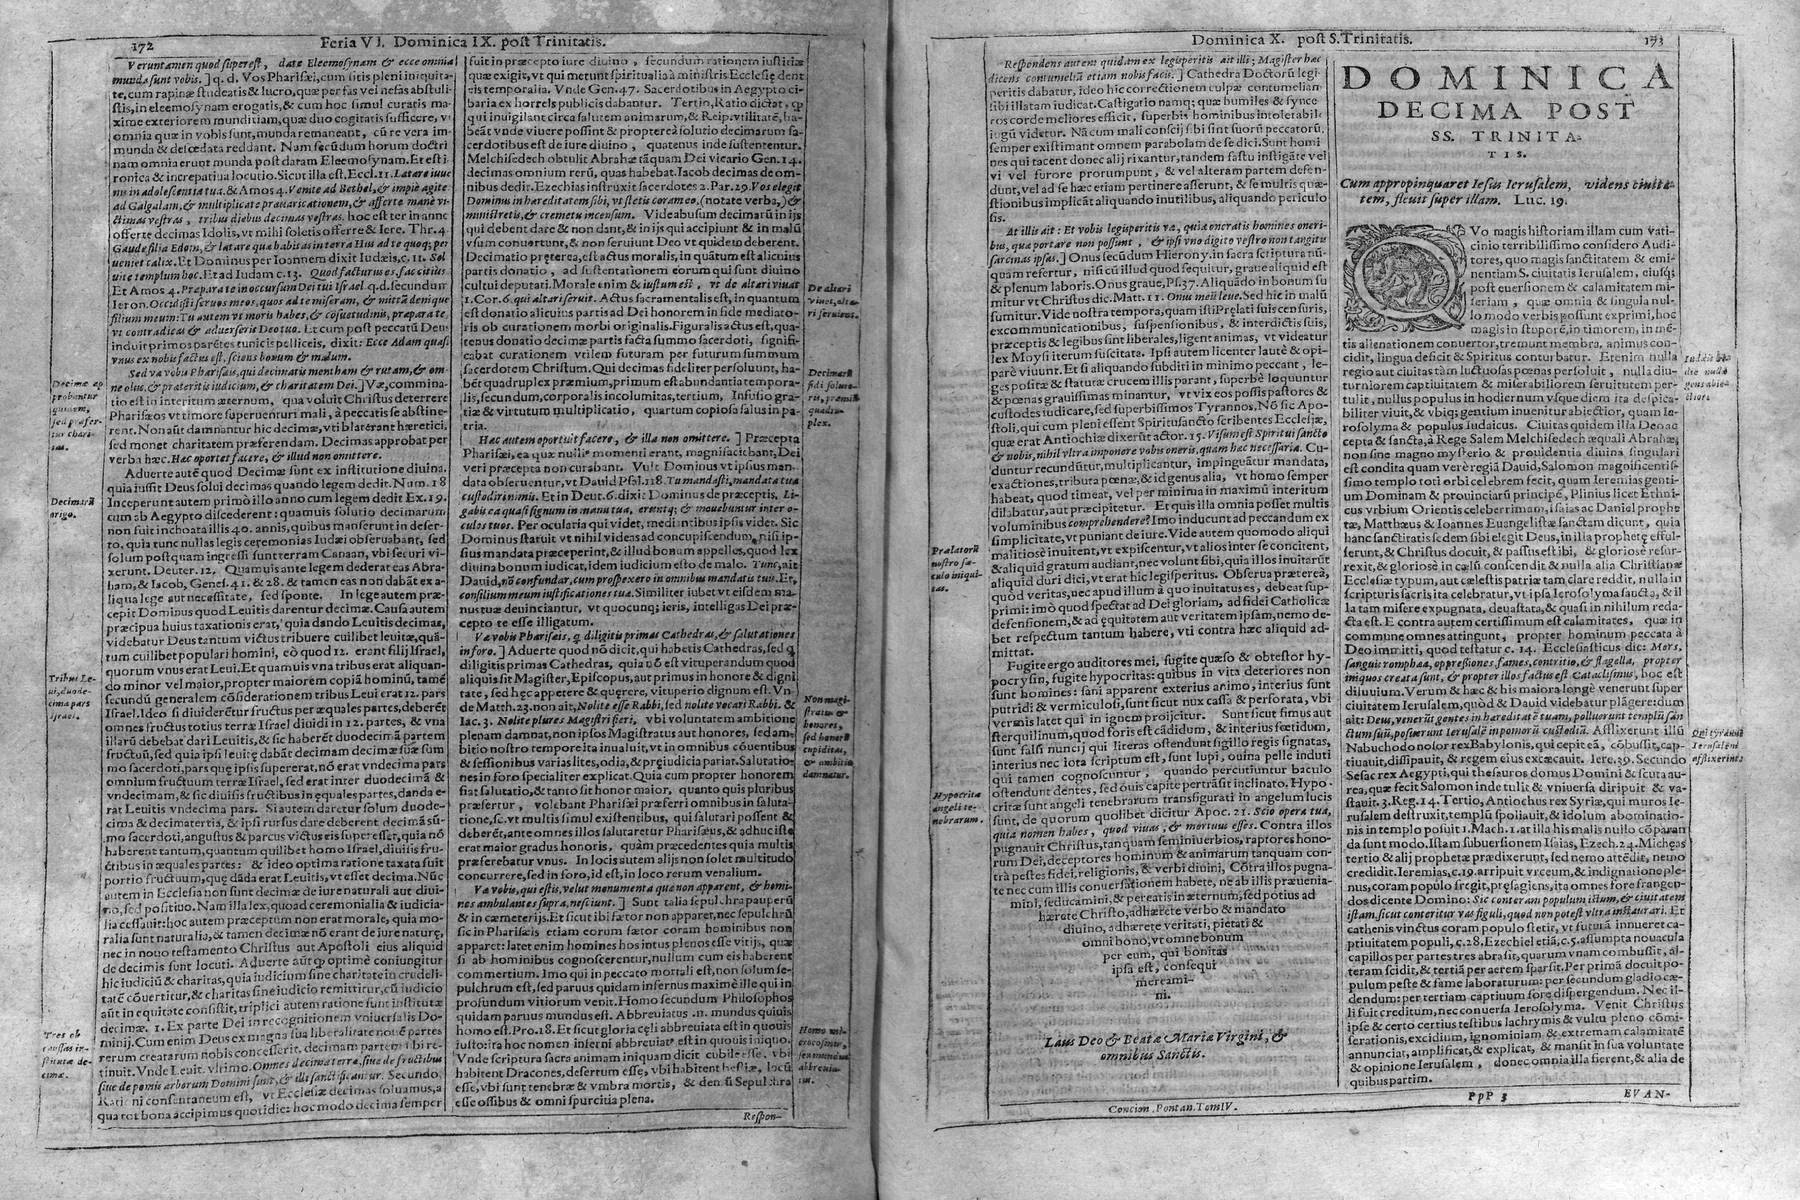 172
Feria VI. Dominica IX. post Trinitatis.
Veruntamen quod superest, date Eleemosynam & ecce omnia
munda sunt vobis. ] q. d. Vos Pharisæi, cum sitis pleni iniquita-
te, cum rapinæ studeatis & lucro, quæ per fas vel nefas abstuli-
stis, in eleemosynam erogatis, & cum hoc simul curatis ma-
xime exteriorem munditiam, quæ duo cogitatis sufficere, vt
omnia quæ in vobis sunt, munda remaneant, cū re vera im-
munda & defœdata reddant. Nam secūdum horum doctri
nam omnia erunt munda post datam Eleemosynam. Et est i-
ronica & increpatiua locutio. Sicut illa est, Eccl. 11. Lætare iuue
nis in adolescentia tua. & Amos 4. Venite ad Bethel, & impiè agite
ad Galgalam, & multiplicate præuaricationem, & afferte mane vi-
ctimas vestras, tribus diebus decimas vestras. hoc est ter in anno
offerte decimas Idolis, vt mihi soletis offerre & Iere. Thr. 4.
Gaude filia Edom, & lætare quæ habitas in terra Hus ad te quoq; per
ueniet calix. Et Dominus per Ioannem dixit Iudæis, c. 11. Sol
uite templum hoc. Et ad Iudam c. 13. Quod facturus es, fac citius
Et Amos 4. Præpara te in occursum Dei tui Israel q.d. secundum
Ieron. Occidisti seruos meos, quos ad te miseram, & mittā denique
filium meum: Tu autem vt moris habes, & cōsuetudinis, præpara te,
vt contradicas & aduerseris Deo tuo. Et cum post peccatū Deus
induit primos parētes tunicis pelliceis, dixit: Ecce Adam quasi
vnus ex nobis factus est, sciens bonum & malum.
Sed væ vobis Pharisæis, qui decimatis mentham & rutam, & om-
ne olus, & præteritis iudicium, & charitatem Dei. ] Væ, commina-
tio est in interitum æternum, qua voluit Christus deterrere
Pharisæos vt timore superuenturi mali, à peccatis se abstine-
rent. Non aūt damnantur hic decimæ, vti blaterant hæretici,
sed monet charitatem præferendam. Decimas approbat per
verba hæc. Hæc oportet facere, & illud non omittere.
Aduerte autē quod Decimæ sunt ex institutione diuina.
quia iussit Deus solui decimas quando legem dedit. Num. 18
Inceperunt autem primò illo anno cum legem dedit Ex. 19.
cum ab Aegypto discederent: quamuis solutio decimarum
non fuit inchoata illis 40. annis, quibus manserunt in deser-
to, quia tunc nullas legis ceremonias Iudæi obseruabant, sed
solum postquam ingressi sunt terram Canaan, vbi securi vi-
xerunt. Deuter. 12. Quamuis ante legem dederat eas Abra-
ham, & Iacob, Genes. 41. & 28. & tamen eas non dabāt ex a-
liqua lege aut necessitate, sed sponte. In lege autem præ-
cepit Dominus quod Leuitis darentur decimæ. Causa autem
præcipua huius taxationis erat, quia dando Leuitis decimas,
videbatur Deus tantum victus tribuere cuilibet leuitæ, quā-
tum cuilibet populari homini, eò quod 12. erant filij Israel,
quorum vnus erat Leui. Et quamuis vna tribus erat aliquan-
do minor vel maior, propter maiorem copiā hominū, tamē
secundū generalem cōsiderationem tribus Leui erat 12. pars
Israel. Ideo si diuiderētur fructus per æquales partes, deberēt
omnes fructus totius terræ Israel diuidi in 12. partes, & vna
illarū debebat dari Leuitis, & sic haberēt duodecimā partem
fructuū, sed quia ipsi leuitę dabāt decimam decimæ suæ sum
mo sacerdoti, pars quę ipsis supererat, nō erat vndecima pars
omnium fructuum terræ Israel, sed erat inter duodecimā &
vndecimam, & sic diuisis fructibus in ęquales partes, danda e-
rat Leuitis vndecima pars. Si autem daretur solum duode-
cima & decimatertia, & ipsi rursus dare deberent decimā sū-
mo sacerdoti, angustus & parcus victus eis superesset, quia nō
haberent tantum, quantum quilibet homo Israel, diuisis fru-
ctibus in æquales partes: & ideo optima ratione taxata fuit
portio fructuum, quę dāda erat Leuitis, vt esset decima. Nūc
autem in Ecclesia non sunt decimæ de iure naturali aut diui-
no, sed positiuo. Nam illa lex, quoad ceremonialia & iudicia-
lia cessauit: hoc autem præceptum non erat morale, quia mo-
ralia sunt naturalia, & tamen decimæ nō erant de iure naturę,
nec in nouo testamento Christus aut Apostoli eius aliquid
de decimis sunt locuti. Aduerte aūt ꝙ optimè coniungitur
hic iudiciū & charitas, quia iudicium sine charitate in crudeli-
tatē cōuertitur, & charitas sine iudicio remittitur, cū iudicio
aūt in equitate consistit, triplici autem ratione sunt institutæ
decimæ. 1. Ex parte Dei in recognitionem vniuersalis Do-
minij. Cum enim Deus ex magna sua liberalitate nouē partes
rerum creatarum nobis concesserit, decimam partem sibi re-
tinuit. Vnde Leuit. vltimo. Omnes decimæ terræ, siue de fructibus
siue de pomis arborum Domini sunt, & illi sanctificantur. Secundo,
Rationi consentaneum est, vt Ecclesiæ decimas soluamus, à
qua tot bona accipimus quotidie: hoc modo decima semper
Decimæ ap
probantur
quidem,
sed præfer-
tur chari-
tas.
Decimarū
origo.
Tribus Le-
ui, duode-
cima pars
Israel.
Tres ob
caussas in-
stitutæ de-
cimæ.
fuit in præcepto iure diuino, secundum rationem iustitiæ
quæ exigit, vt qui metunt spiritualia à ministris Ecclesię dent
eis temporalia. Vnde Gen. 47. Sacerdotibus in Aegypto ci-
baria ex horreis publicis dabantur. Tertio, Ratio dictat, ꝙ
qui inuigilant circa salutem animarum, & Reip. vtilitatē, ha-
beāt vnde viuere possint & propterea solutio decimarum sa-
cerdotibus est de iure diuino, quatenus inde sustententur.
Melchisedech obtulit Abrahæ tāquam Dei vicario Gen. 14.
decimas omnium rerū, quas habebat. Iacob decimas de om-
nibus dedit. Ezechias instruxit sacerdotes 2. Par. 29. Vos elegit
Dominus in hæreditatem sibi, vt stetis coram eo, (notate verba,) &
ministretis, & cremetis incensum. Vide abusum decimarū in ijs
qui debent dare & non dant, & in ijs qui accipiunt & in malū
vsum conuertunt, & non seruiunt Deo vt quidem deberent.
Decimatio pręterea, est actus moralis, in quātum est alicuius
partis donatio, ad sustentationem eorum qui sunt diuino
cultui deputati. Morale enim & iustum est, vt de altari viuat
1. Cor. 6. qui altari seruit. Actus sacramentalis est, in quantum
est donatio alicuius partis ad Dei honorem in fide mediato-
ris ob curationem morbi originalis. Figuralis actus est, qua-
tenus donatio decimæ partis facta summo sacerdoti, signifi-
cabat curationem vtilem futuram per futurum summum
sacerdotem Christum. Qui decimas fideliter persoluunt, ha-
bēt quadruplex præmium, primum est abundantia tempora-
lis, secundum, corporalis incolumitas, tertium, Infusio gra-
tiæ & virtutum multiplicatio, quartum copiosa salus in pa-
tria.
Hæc autem oportuit facere, & illa non omittere. ] Præcepta
Pharisæi, ea quæ nullius momenti erant, magnifaciebant, Dei
veri præcepta non curabant. Vult Dominus vt ipsius man-
data obseruentur, vt Dauid Psal. 118. Tu mandasti, mandata tua
custodiri nimis. Et in Deut. 6. dixi: Dominus de præceptis, Li-
gabis ea quasi signum in manu tua, eruntq; & mouebuntur inter o-
culos tuos. Per ocularia qui videt, mediantibus ipsis videt. Sic
Dominus statuit vt nihil videas ad concupiscendum, nisi ip-
sius mandata præceperint, & illud bonum appelles, quod lex
diuina bonum iudicat, idem iudicium esto de malo. Tunc, ait
Dauid, nō confundar, cum prospexero in omnibus mandatis tuis. Et,
consilium meum iustificationes tuæ. Similiter iubet vt eisdem ma-
nus tuæ deuinciantur, vt quocunq; ieris, intelligas Dei præ-
cepto te esse illigatum.
Væ vobis Pharisæis, q. diligitis primas Cathedras, & salutationes
in foro. ] Aduerte quod nō dicit, qui habetis Cathedras, sed q.
diligitis primas Cathedras, quia nō est vituperandum quod
aliquis sit Magister, Episcopus, aut primus in honore & digni
tate, sed hęc appetere & quęrere, vituperio dignum est. Vn-
de Matth. 23. non ait, Nolite esse Rabbi, sed nolite vocari Rabbi. &
Iac. 3. Nolite plures Magistri fieri, vbi voluntatem ambitione
plenam damnat, non ipsos Magistratus aut honores, sed am-
bitio nostro tempore ita inualuit, vt in omnibus cōuentibus
& sessionibus varias lites, odia, & pręiudicia pariat. Salutatio-
nes in foro specialiter explicat. Quia cum propter honorem
fiat salutatio, & tanto sit honor maior, quanto quis pluribus
præfertur, volebant Pharisæi præferri omnibus in saluta-
tione, sc. vt multis simul existentibus, qui salutari possent &
deberēt, ante omnes illos salutaretur Pharisæus, & adhuc iste
erat maior gradus honoris, quàm præcedentes quia multis
præferebatur vnus. In locis autem alijs non solet multitudo
concurrere, sed in foro, id est, in loco rerum venalium.
Væ vobis, qui estis, velut monumenta quæ non apparent, & homi-
nes ambulantes supra, nesciunt. ] Sunt talia sepulchra pauperū
& in cæmeterijs. Et sicut ibi fætor non apparet, nec sepulchrū
sic in Pharisæis etiam eorum fætor coram hominibus non
apparet: latet enim homines hos intus plenos esse vitijs, quæ
si ab hominibus cognoscerentur, nullum cum eis haberent
commertium. Imo qui in peccato mortali est, non solum se-
pulchrum est, sed paruus quidam infernus maximè ille qui in
profundum vitiorum venit. Homo secundum Philosophos
quidam paruus mundus est. Abbreuiatus .n. mundus quiuis
homo est. Pro. 18. Et sicut gloria cęli abbreuiata est in quouis
iusto: ita hoc nomen inferni abbreuiat est in quouis iniquo.
Vnde scriptura sacra animam iniquam dicit cubile esse, vbi
habitent Dracones, desertum esse, vbi habitent bestiæ, locū
esse, vbi sunt tenebræ & vmbra mortis, & den. ū Sepulchra
esse ossibus & omni spurcitia plena.
Respon-
De altari
viuat, alta-
ri seruiens.
Decimarū
fidi soluto-
ris, præmiū
quadru-
plex.
Non magi-
stratus &
honores,
sed honorū
cupiditas,
& ambitio
damnatur.
Homo mi-
crocosmus,
seu mundus
abbreuia-
tus.
Dominica X. post S. Trinitatis.
173
Respondens autem quidam ex legisperitis ait illi; Magister hæc
dicens contumeliā etiam nobis facis. ] Cathedra Doctorū legi-
peritis dabatur, ideo hic correctionem culpæ contumeliam
sibi illatam iudicat. Castigatio namq; quæ humiles & synce-
ros corde meliores efficit, superbis hominibus intolerabile
iugū videtur. Nā cum mali conscij sibi sint suorū peccatorū,
semper existimant omnem parabolam de se dici. Sunt homi
nes qui tacent donec alij rixantur, tandem fastu instigāte vel
vi vel furore prorumpunt, & vel alteram partem defen-
dunt, vel ad se hæc etiam pertinere asserunt, & se multis quæ-
stionibus implicāt aliquando inutilibus, aliquando periculo
sis.
At ille ait: Et vobis legisperitis væ, quia oneratis homines oneri-
bus, quæ portare non possunt, & ipsi vno digito vestro non tangitis
sarcinas ipsas. ] Onus secūdum Hierony. in sacra scriptura nū-
quam refertur, nisi cū illud quod sequitur, graue aliquid est
& plenum laboris. Onus graue, Ps. 37. Aliquādo in bonum su
mitur vt Christus dic. Matt. 11. Onus meū leue. Sed hic in malū
sumitur. Vide nostra tempora, quam isti Prelati suis censuris,
excommunicationibus, suspensionibus, & interdictis suis,
præceptis & legibus sint liberales, ligent animas, vt videatur
lex Moysi iterum suscitata. Ipsi autem licenter lautè & opi-
parè viuunt. Et si aliquando subditi in minimo peccant, le-
ges positæ & statutæ crucem illis parant, superbè loquuntur
& pœnas grauissimas minantur, vt vix eos possis pastores &
custodes iudicare, sed superbissimos Tyrannos. Nō sic Apo-
stoli, qui cum pleni essent Spiritusancto scribentes Ecclesiæ,
quæ erat Antiochiæ dixerūt actor. 15. Visum est Spiritui sancto
& nobis, nihil vltra imponere vobis oneris, quam hæc necessaria. Cu-
duntur recunduntur, multiplicantur, impinguātur mandata,
exactiones, tributa pœnæ, & id genus alia, vt homo semper
habeat, quod timeat, vel per minima in maximū interitum
dilabatur, aut præcipitetur. Et quis illa omnia posset multis
voluminibus comprehendere? Imo inducunt ad peccandum ex
simplicitate, vt puniant de iure. Vide autem quomodo aliqui
malitiosè inuitent, vt expiscentur, vt alios inter se concitent,
& aliquid gratum audiant, nec volunt sibi, quia illos inuitarūt
aliquid duri dici, vt erat hic legisperitus. Obserua præterea,
quòd veritas, nec apud illum à quo inuitatus es, debeat sup-
primi: imò quod spectat ad Dei gloriam, ad fidei Catholicæ
defensionem, & ad ęquitatem aut veritatem ipsam, nemo de-
bet respectum tantum habere, vti contra hæc aliquid ad-
mittat.
Fugite ergo auditores mei, fugite quæso & obtestor hy-
pocrysin, fugite hypocritas: quibus in vita deteriores non
sunt homines: sani apparent exterius animo, interius sunt
putridi & vermiculosi, sunt sicut nux cassa & perforata, vbi
vermis latet qui in ignem proijcitur. Sunt sicut fimus aut
sterquilinum, quod foris est cādidum, & interius fœtidum,
sunt falsi nuncij qui literas ostendunt sigillo regis signatas,
interius nec iota scriptum est, sunt lupi, ouina pelle induti
qui tamen cognoscuntur, quando percutiuntur baculo
ostendunt dentes, sed ouis capite pertrāsit inclinato. Hypo-
critæ sunt angeli tenebrarum transfigurati in angelum lucis
sunt, de quorum quolibet dicitur Apoc. 21. Scio opera tua,
quia nomen habes, quod viuas, & mortuus esses. Contra illos
pugnauit Christus, tanquam seminiuerbios, raptores hono-
rum Dei, deceptores hominum & animarum tanquam con-
trà pestes fidei, religionis, & verbi diuini, Cōtra illos pugna-
te nec cum illis conuersationem habete, ne ab illis præuenia-
mini, seducamini, & pereatis in æternum, sed potius ad
hærete Christo, adhærete verbo & mandato
diuino, adhærete veritati, pietati &
omni bono, vt omne bonum
per eum, qui bonitas
ipsa est, consequi
mereami-
ni.
Laus Deo & Beatæ Mariæ Virgini, &
omnibus Sanctis.
Concion. Pontan. Tom IV.
Prælatorū
nostro sæ-
culo iniqui-
tas.
Hypocritæ
angeli te-
nebrarum.
DOMINICA
DECIMA POST
SS. TRINITA-
TIS.
Cum appropinquaret Iesus Ierusalem, videns ciuita-
tem, fleuit super illam. Luc. 19.
QVo magis historiam illam cum vati-
cinio terribilissimo considero Audi-
tores, quo magis sanctitatem & emi-
nentiam S. ciuitatis Ierusalem, eiusq;
post euersionem & calamitatem mi-
seriam, quæ omnia & singula nul-
lo modo verbis possunt exprimi, hoc
magis in stuporē, in timorem, in mē-
tis alienationem conuertor, tremunt membra, animus con-
cidit, lingua deficit & Spiritus conturbatur. Etenim nulla
regio aut ciuitas tàm luctuosas pœnas persoluit, nulla diu-
turniorem captiuitatem & miserabiliorem seruitutem per-
tulit, nullus populus in hodiernum vsque diem ita despica-
biliter viuit, & vbiq; gentium inuenitur abiectior, quam Ie-
rosolyma & populus iudaicus. Ciuitas quidem illa Deo ac
cepta & sancta, à Rege Salem Melchisedech æquali Abrahæ,
non sine magno mysterio & prouidentia diuina singulari
est condita quam verè regiā Dauid, Salomon magnificentis-
simo templo toti orbi celebrem fecit, quam Ieremias genti-
um Dominam & prouinciarū principē, Plinius licet Ethni-
cus vrbium Orientis celeberrimam, isaias ac Daniel prophe
tæ, Matthæus & Ioannes Euangelistæ sanctam dicunt, quia
hanc sanctitatis sedem sibi elegit Deus, in illa prophetę efful-
serunt, & Christus docuit, & passus est ibi, & gloriosè resur-
rexit, & gloriosè in cælū conscendit & nulla alia Christianæ
Ecclesiæ typum, aut cælestis patriæ tam clarè reddit, nulla in
scripturis sacris ita celebratur, vt ipsa Ierosolyma sancta, & il
la tam misere expugnata, deuastata, & quasi in nihilum reda-
cta est. E contra autem certissimum est calamitates, quæ in
commune omnes attingunt, propter hominum peccata à
Deo immitti, quod testatur c. 14. Ecclesiasticus dic: Mors,
sanguis romphæa, oppressiones fames, contritio, & flagella, propter
iniquos creata sunt, & propter illos factus est Cataclismus, hoc est
diluuium. Verum & hæc & his maiora longè venerunt super
ciuitatem Ierusalem, quòd & Dauid videbatur plāgere: dum
ait: Deus, venerūt gentes in hæreditatē tuam, polluerunt templū san
ctum suū, posuerunt Ierusalē in pomorū custodiā. Afflixerunt illū
Nabuchodonosor rex Babylonis, qui cepit eā, cōbussit, cap-
tiuauit, dissipauit, & regem eius excæcauit. Iere. 39. Secundo
Sesac rex Aegypti, qui thesauros domus Domini & scuta au-
rea, quæ fecit Salomon inde tulit & vniuersa diripuit & va-
stauit. 3. Reg. 14. Tertio, Antiochus rex Syriæ, qui muros Ie-
rusalem destruxit, templū spoliauit, & idolum abominatio-
nis in templo posuit 1. Mach. 1. at illa his malis nullo cōparan
da sunt modo. Istam subuersionem Isaias, Ezech. 24. Micheas
tertio & alij prophetæ prædixerunt, sed nemo attēdit, nemo
credidit. Ieremias, c. 19. arripuit vrceum, & indignatione ple-
nus, coram populo fregit, pręsagiens, ita omnes fore frangen-
dos dicente Domino: Sic conteram populum istum, & ciuitatem
istam, sicut conteritur vas figuli, quod non potest vltra instaurari. Et
cathenis vinctus coram populo stetit, vt futurā innueret ca-
ptiuitatem populi, c. 28. Ezechiel etiā, c. 5. assumpta nouacula
capillos per partes tres abrasit, quarum vnam combussit, al-
teram scidit, & tertiā per aerem sparsit. Per primā docuit po-
pulum peste & fame laboraturum: per secundum gladio cæ-
dendum: per tertiam captiuum fore dispergendum. Nec il-
li fuit creditum, nec conuersa Ierosolyma. Venit Christus
ipse & certo certius testibus lachrymis & vultu pleno cōmi-
serationis, excidium, ignominiam & extremam calamitatē
annunciat, amplificat, & explicat, & mansit in sua voluntate
& opinione Ierusalem, donec omnia illa fierent, & alia de
quibus partim.
PpP 3
EVAN-
Iudæis ho-
die nulla
gens abie-
ctior.
Qui tyranni
Ierusalem
afflixerint.